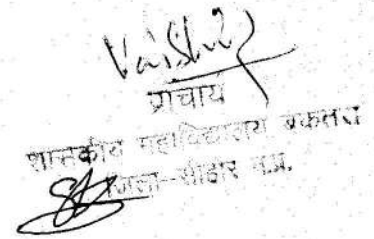 प्राचार्य
शासकीय महाविद्यालय बकतरा
जिला-सीहोर म.प्र.